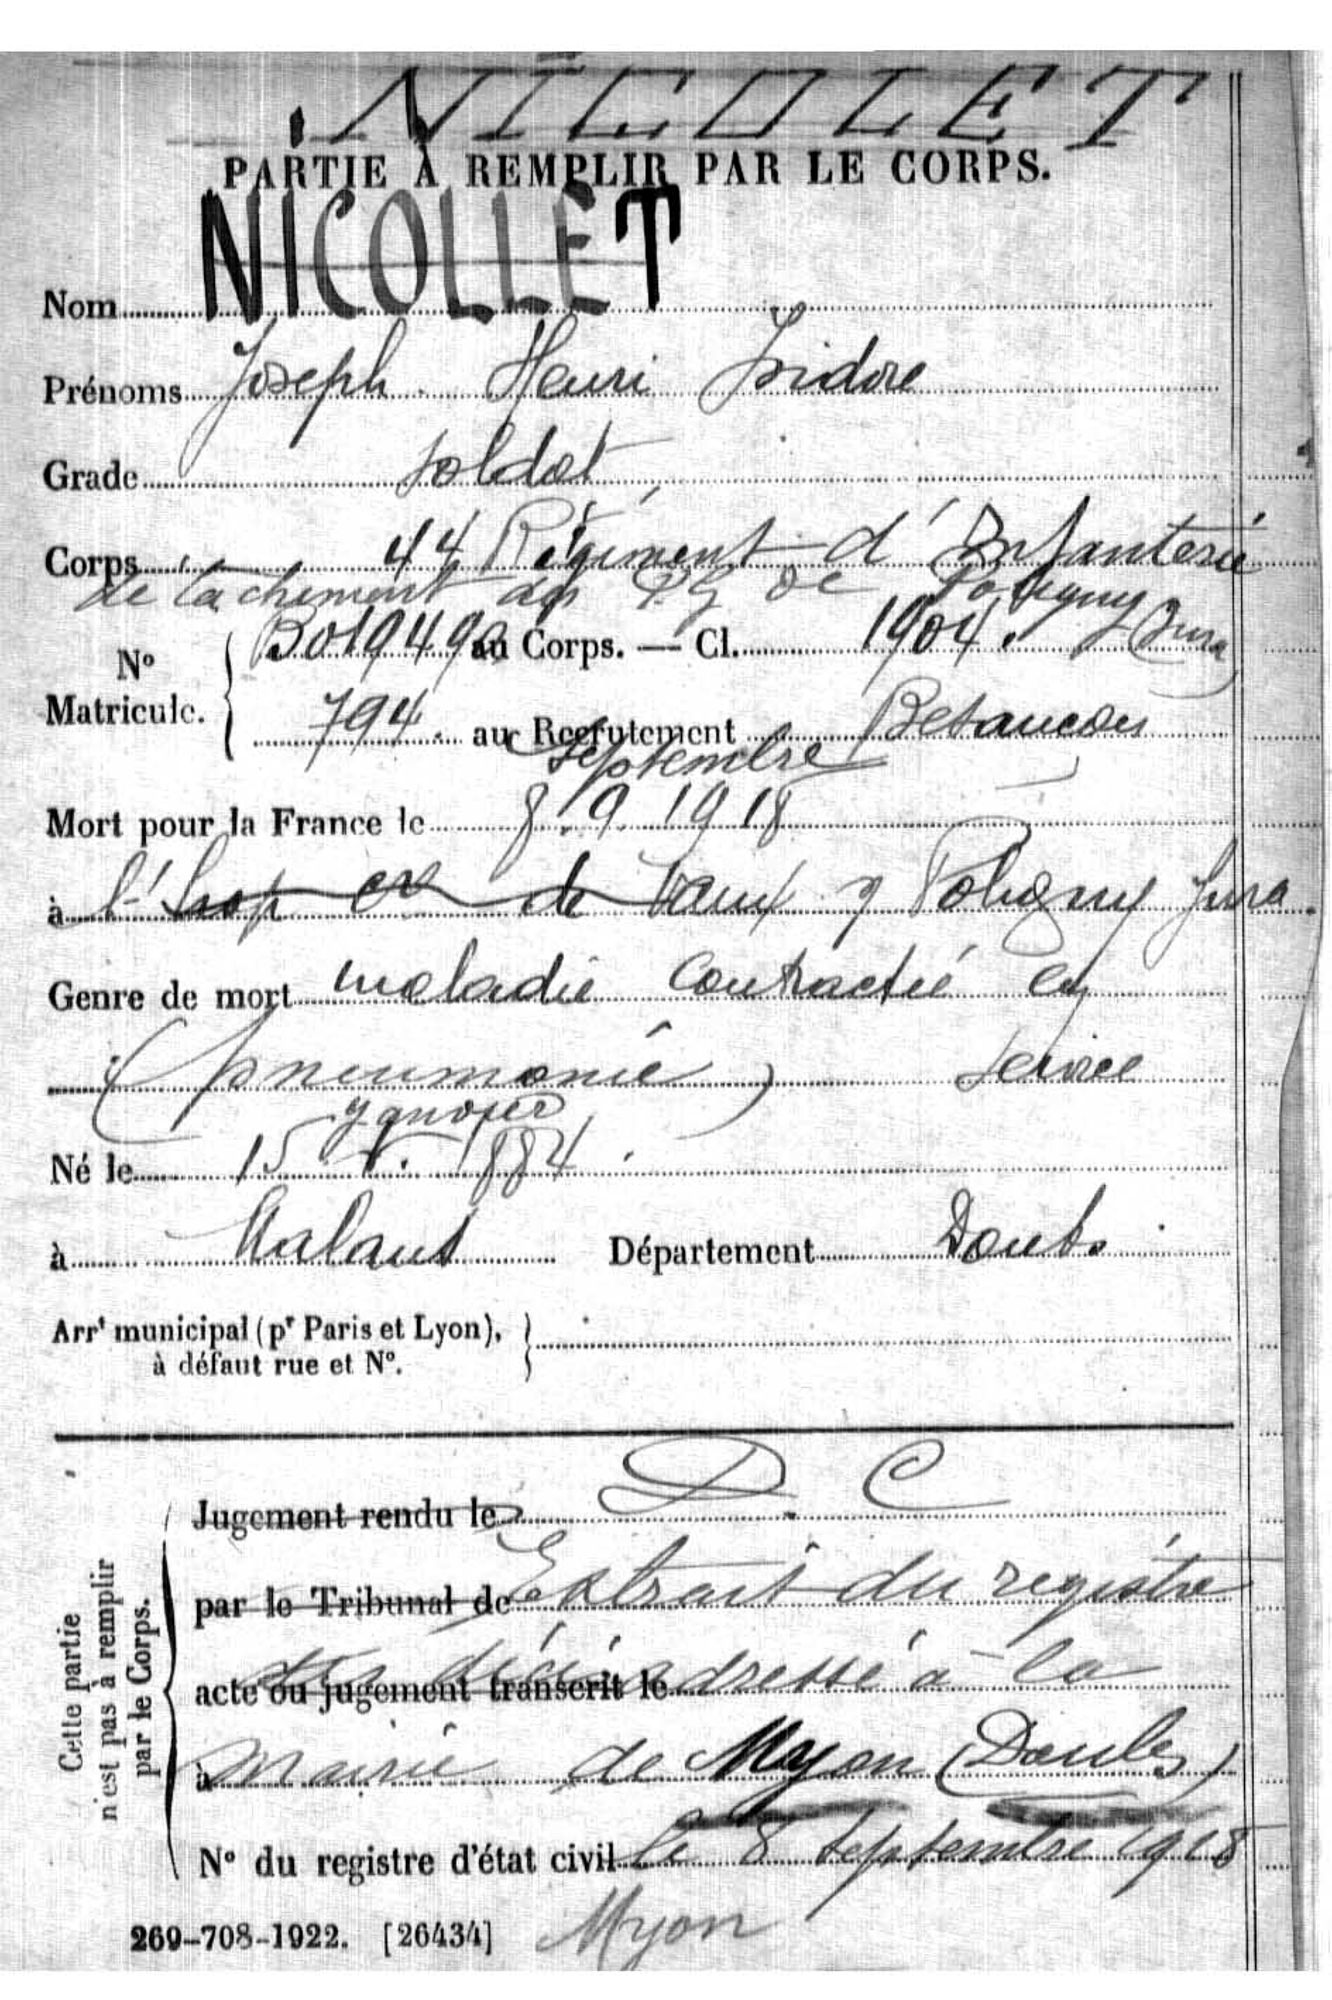 NICOLET
PARTIE À REMPLIR PAR LE CORPS.
Nom NICOLLET
Prénoms Joseph Henri Isidore
Grade soldat
Corps 44 Régiment d'Infanterie
détachement des P.G de Poligny (Jura)
No Matricule. { B019490 au Corps. — Cl. 1904.
794. au Recrutement Besançon
septembre
Mort pour la France le 8.9.1918
à l'hop de Vaux s/ Poligny Jura.
Genre de mort maladie contractée en
(pneumonie) service
janvier
Né le 15. 1. 1884.
à Malans Département Doubs
Arrt municipal (pr Paris et Lyon), }
à défaut rue et No.
D. C
Jugement rendu le
par le Tribunal de Extrait du registre
acte ou jugement transcrit le des décès adressé à la
à mairie de Myon (Doubs)
No du registre d'état civil le 8 septembre 1918
Cette partie
n'est pas à remplir
par le Corps.
269-708-1922. [26434] Myon